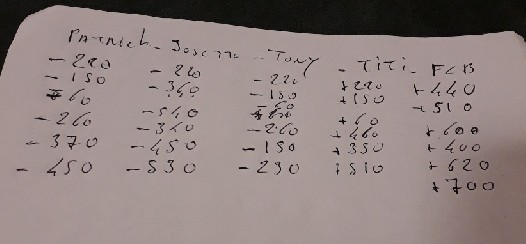 PATRICK - JOSETTE - TONY - TITI - FCB
-220 -220 -220 +220 +440
-150 -360 -150 +150 +510
-60 -540 -60 +60 +600
-260 -360 -260 +460 +400
-370 -450 -150 +350 +620
-450 -530 -230 +510 +700